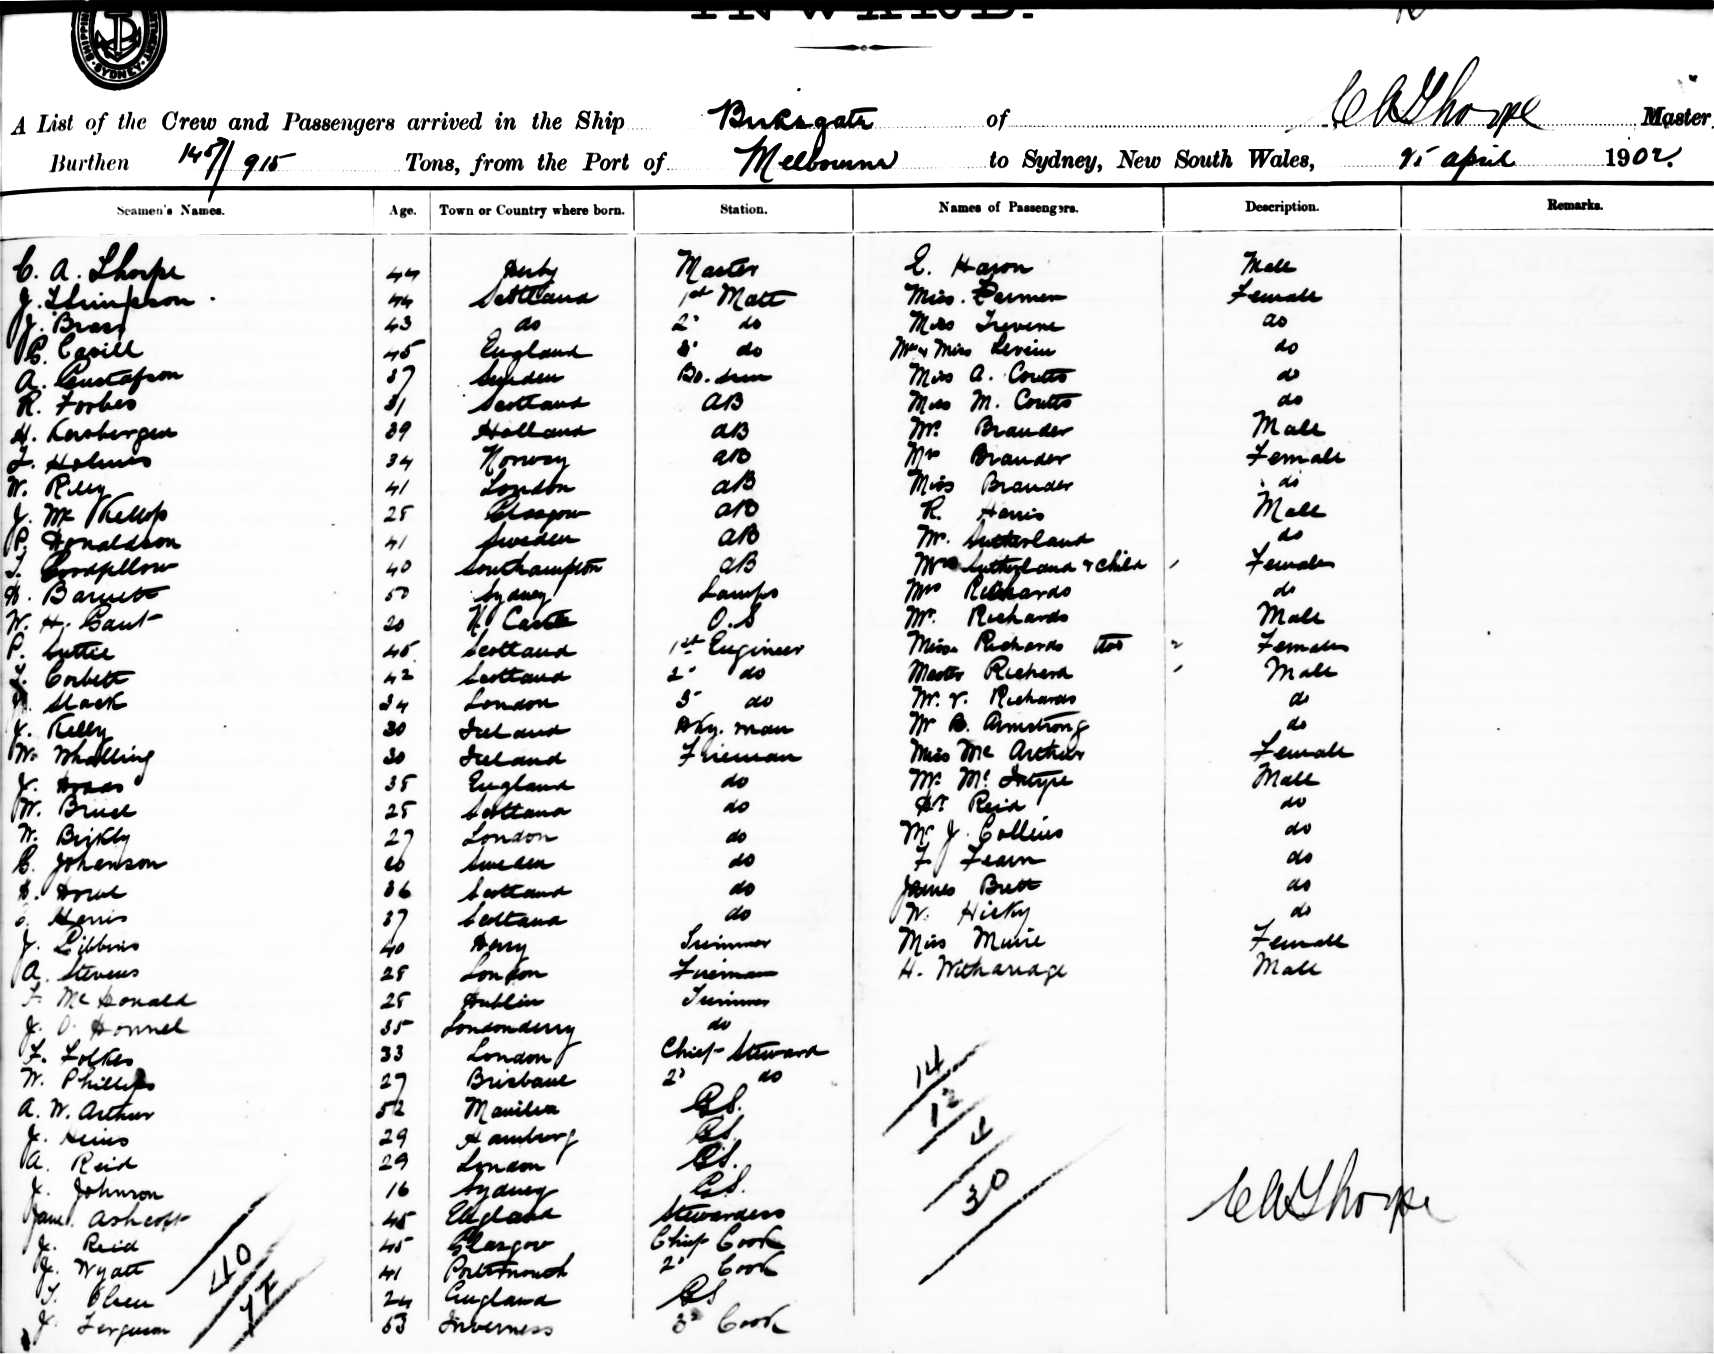 INWARD.
SYDNEY
A List of the Crew and Passengers arrived in the Ship Birksgate of C A Thorpe Master,
Burthen 1457/915 Tons, from the Port of Melbourne to Sydney, New South Wales, 25 April 1902.
Seamen's Names. Age. Town or Country where born. Station. Names of Passengers. Description. Remarks.
C. A. Thorpe 44 Derby Master E. Hason Male
J. Thimpson 44 Scotland 1st Mate Miss Female
J. Brass 43 do 2d do Miss Trevene do
C. Cavill 45 England 3d do Mrs & Miss Levien do
A. Gustafson 37 Sweden Bo. sun Miss A. Coutts do
R. Forbes 31 Scotland AB Miss M. Coutts do
H. Kersbergen 39 Holland AB Mr. Brander Male
T. Holmes 34 Norway AB Mrs Brander Female
W. Riley 41 London AB Miss Brander do
J. Mc Killop 25 Glasgow AB R. Harris Male
P. Donaldson 41 Sweden AB Mr. Sutherland do
T. Goodfellow 40 Southampton AB Mrs Sutherland & child Female
D. Barnett 50 Sydney Lamps Mrs Richards do
W. H. Gaut 20 N. Castle O.S Mr. Richards Male
P. Suttie 45 Scotland 1st Engineer Misses Richards two 2 Females
T. Corbett 42 Scotland 2d do Master Richard Male
Slack 34 London 3 do Mr. V. Richards do
J. Kelly 30 Ireland Dky. man Mr B. Armstrong do
W. Whalling 30 Ireland Fireman Miss Mc Arthur Female
J. 35 England do Mr. Mc Intyre Male
W. Bruce 25 Scotland do Dr. Reid do
W. Bickly 27 London do Mr J. Collins do
C. Johanson 20 Sweden do F Fearn do
D. 36 Scotland do James Brett do
Harris 37 Scotland do W. Hicky do
J. Gibbins 40 Trimmer Miss Muire Female
A. Stevens 25 London Fireman H. Witharidge Male
F. Mc Donald 25 Dublin Trimmer
J. O. Donnel 35 Londonderry do
F. Folkes 33 London Chief Steward
W. Phillips 27 Brisbane 2d do 14
A. W. Arthur 52 Manilla GS. 12
J. Heins 29 Hamburg GS. 4
A. Reid 29 London GS.
J. Johnson 16 Sydney GS. 30 C A Thorpe
Jane. Ashcroft 45 England Stewardess
J. Reid 45 Glasgow Chief Cook
J. Wyatt 41 Portsmouth 2d Cook 40
T. Olsen 24 England GS
J. Ferguson 53 Inverness 3d Cook